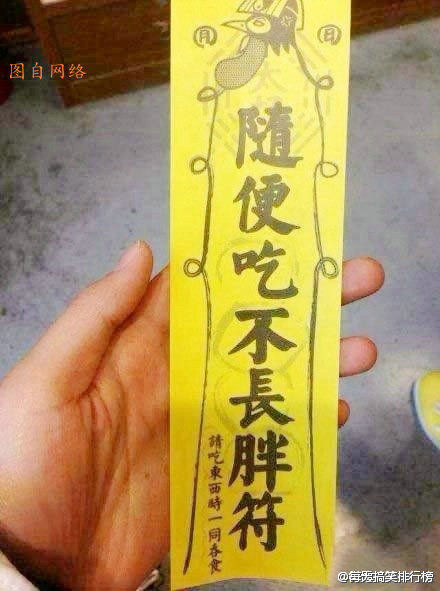 图自网络
月
日
隨便吃不長胖符
請吃東西時一同吞食
@每日搞笑排行榜